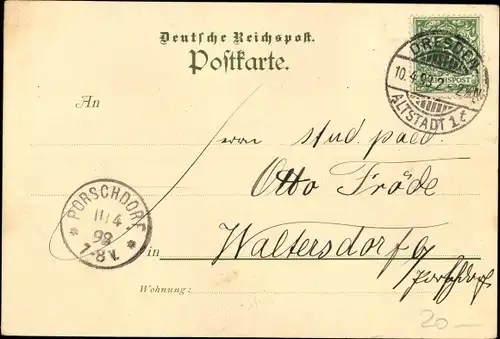 Deutsche Reichspost.
Postkarte.
REICHSPOST
DRESDEN
10.4.99.2-
ALTSTADT 1 c
An
Herrn stud. paed.
Otto Fröde
PORSCHDORF
11/4
99
7-8 V.
in Waltersdorf
Porschdorf
Wohnung:
20-